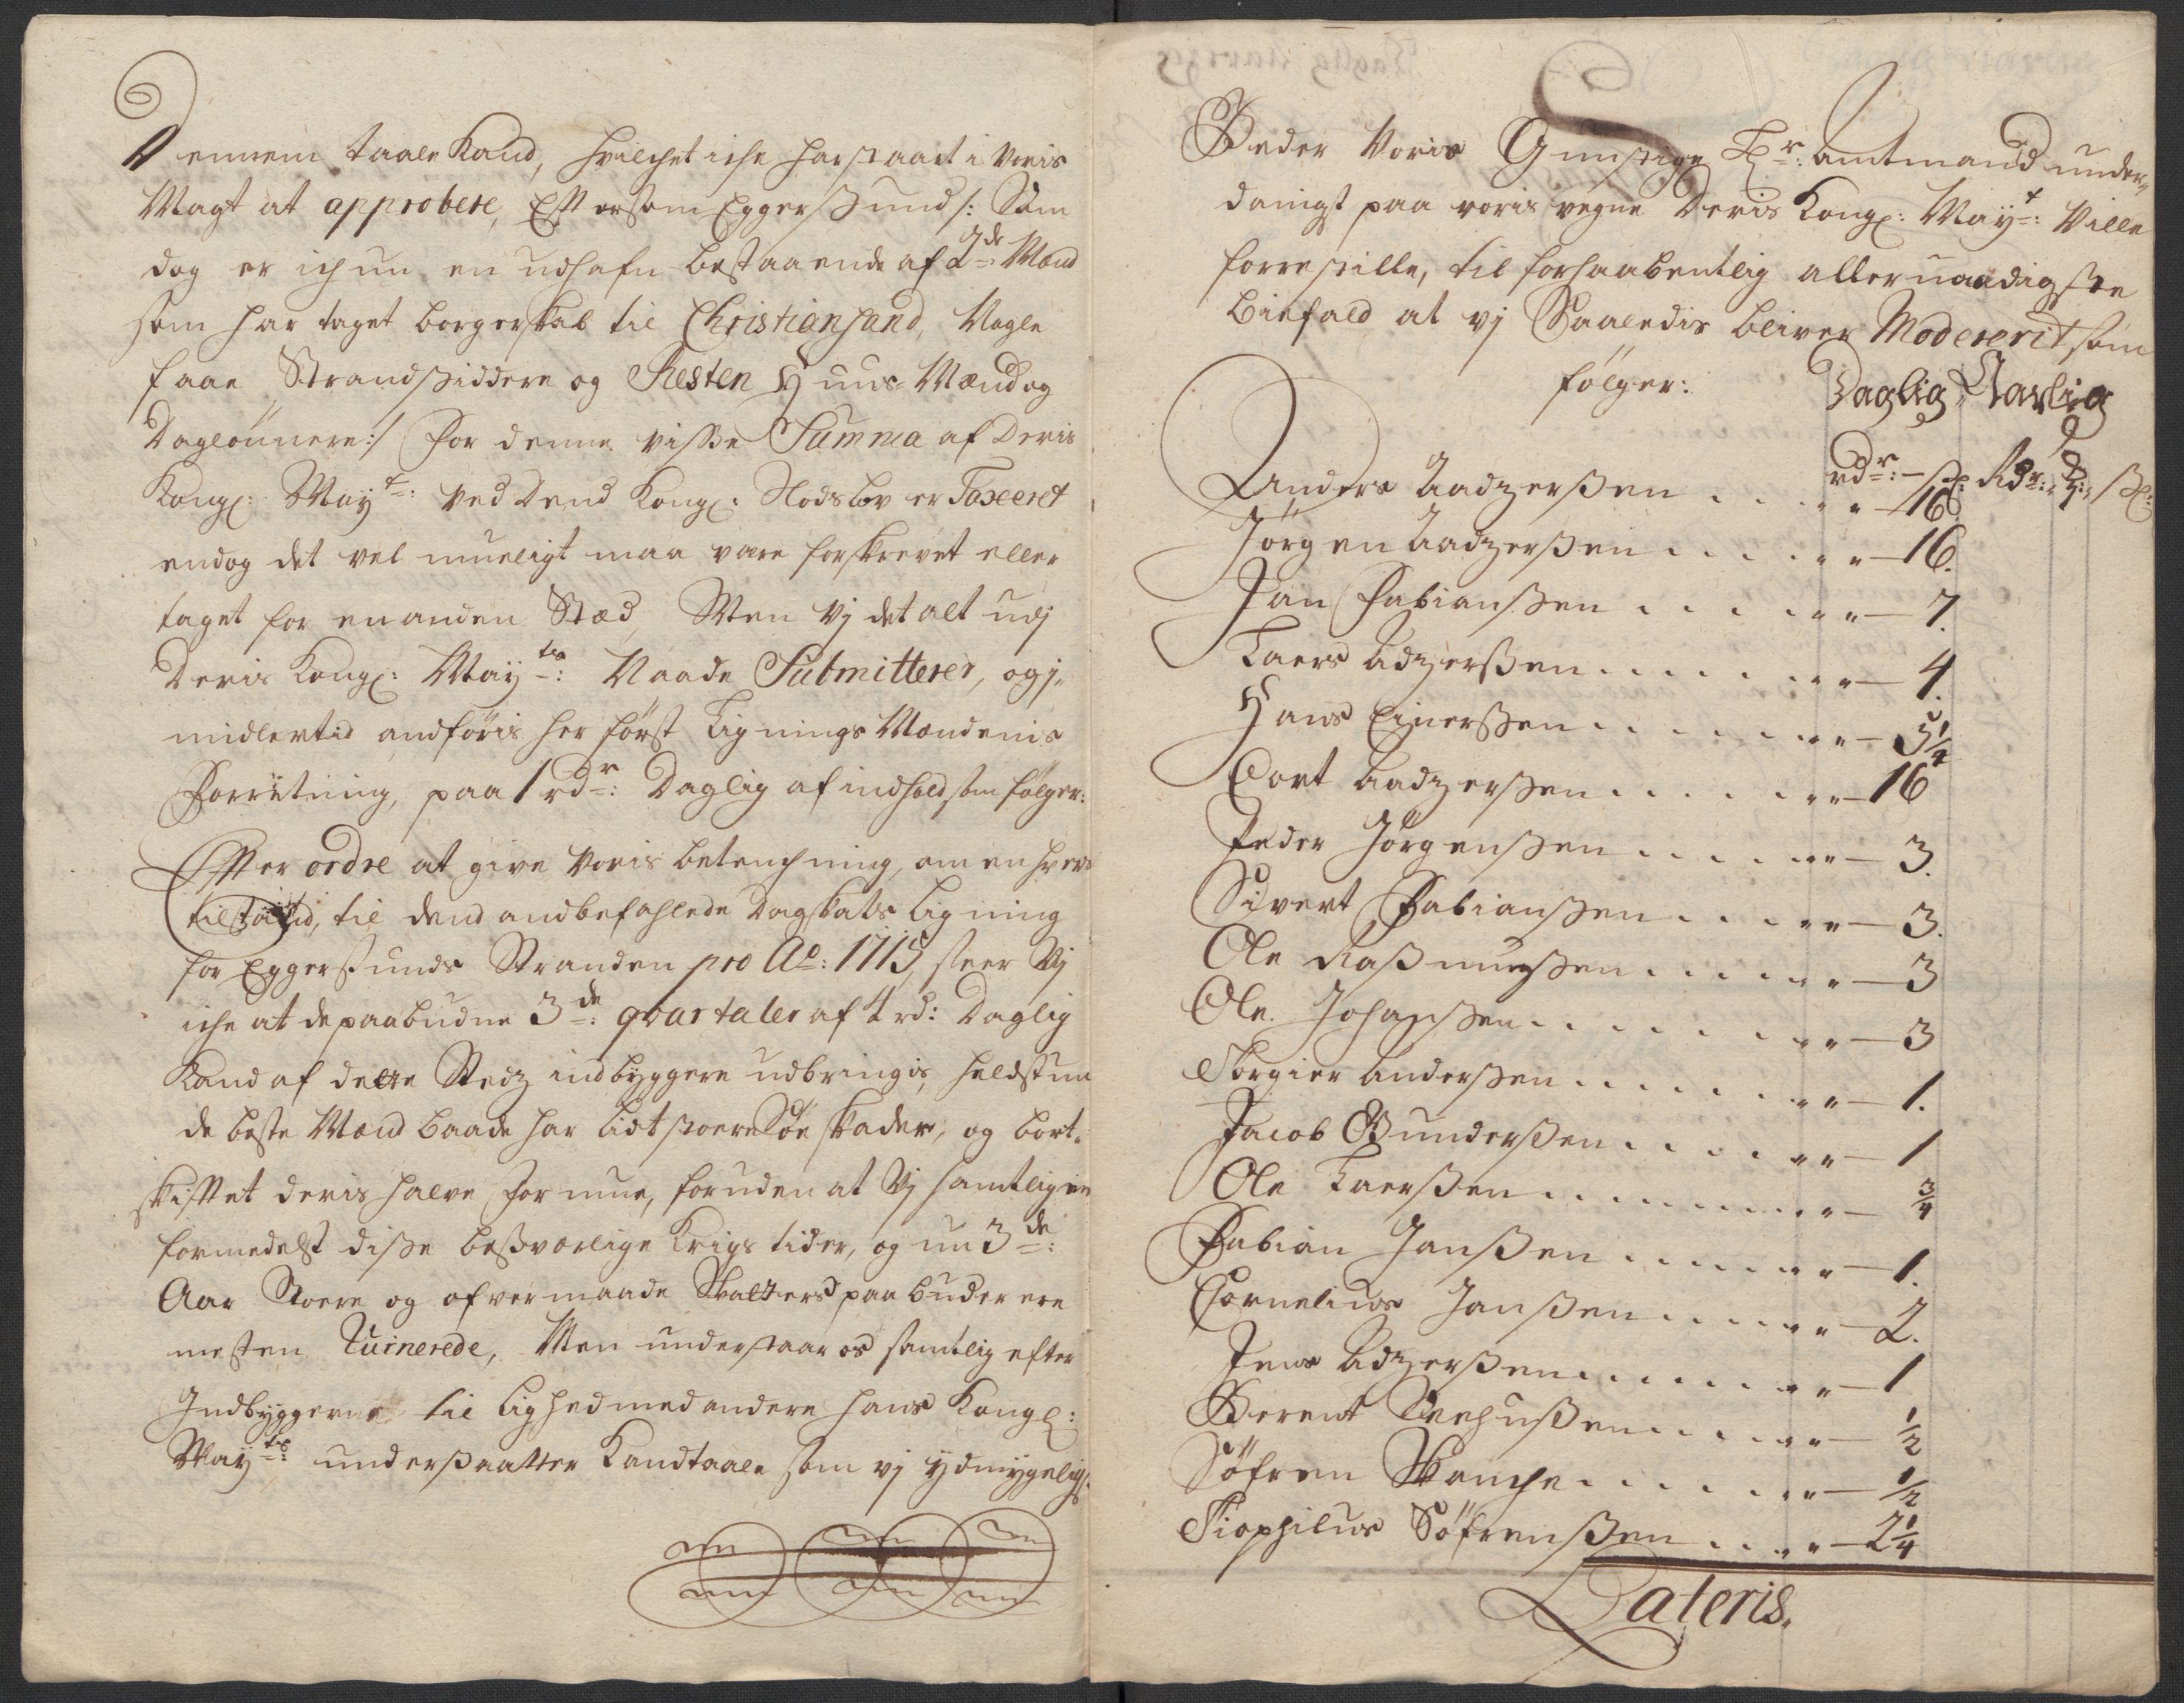 Dennem taale Kand, hvilchet iche har staaet i voris
Magt at approbere, Efftersom Eggersund /: Som
dog er ichun en udhafn bestaaende af 2de Mænd
som har taget borgerskab til Christiansand, Nogle
faae Strandsiddere og Resten Huus-Mænd og
Daglønnere:/ for denne visse Summa af Deris
Kongl: Mayt: ved Dend Kongl: Slods lov er Taxeret
endog det vel mueligt maa være forskrevet eller
taget for en anden Stæd, Men Vj det alt udj
Deris Kongl: Mayts: Naade Submitterer, og j,
midlertid andføris her først Lignings Mændenis
Forrætning, paa 1 rdr: Daglig af indhold som følger:
Effter ordre at give voris betenchning, om en hvers
tilstand, til dend andbefahlede Dagskats Ligning
for Eggersunds Stranden pro Ao: 1715, seer Vj
iche at de paabudne 3de: qvartaler af 4 rd: Daglig
Kand af dette Stedz indbyggere udbringis, helst nu
de beste Mænd baade har lidt store Søe skader, og bort-
skifftet deris halve formue, foruden at Vj samtlig en
formedelst disse besværlige Krigs tider, og nu 3de:
Aar Store og ofvermaade Skatters paabuder ere
mesten Ruinerede, Men understaar os samtlig efter
Indbyggerne til lighed med andere hans Kongl:
Mayts: undersaatter Kand taale som vj ydmygeligst
Beder Voris Gunstige Hr: Amtmand under,,
danigst paa voris vegne Deris Kongl: Mayt: Ville
forrestille, til forhaabentlig allernaadigste
biefald at vj Saaledis bliver Modererit som
følger: Daglig Aarlig
rdr: – s: Rdr: s:
Anders Aadzersen . . . . " " — 16
Jørgen Aadzersen . . . . " " — 16.
Jan Fabiansen . . . . " " — 7.
Laers Adzersen . . . . " " — 4.
Hans Einersen . . . . " " — 5 1/4
Cort Aadzersen . . . . " " — 16
Peder Jørgensen . . . . " " — 3.
Sivert Fabiansen . . . . " " — 3.
Ole Rasmusen . . . . " " — 3
Ole Johansen . . . . " " — 3
Torgier Andersen . . . . " " — 1.
Jacob Gundersen . . . . " " — 1
Ole Laersen . . . . " " — 3/4
Fabian Jansen . . . . " " — 1.
Cornelius Jansen . . . . " " — 2.
Jens Adzersen . . . . " " — 1
Berent . . . . " " — 1/2
Søfren . . . . " " — 1/2
Tiophilus Søfrensen . . . . " " — 2 1/4
Lateris.